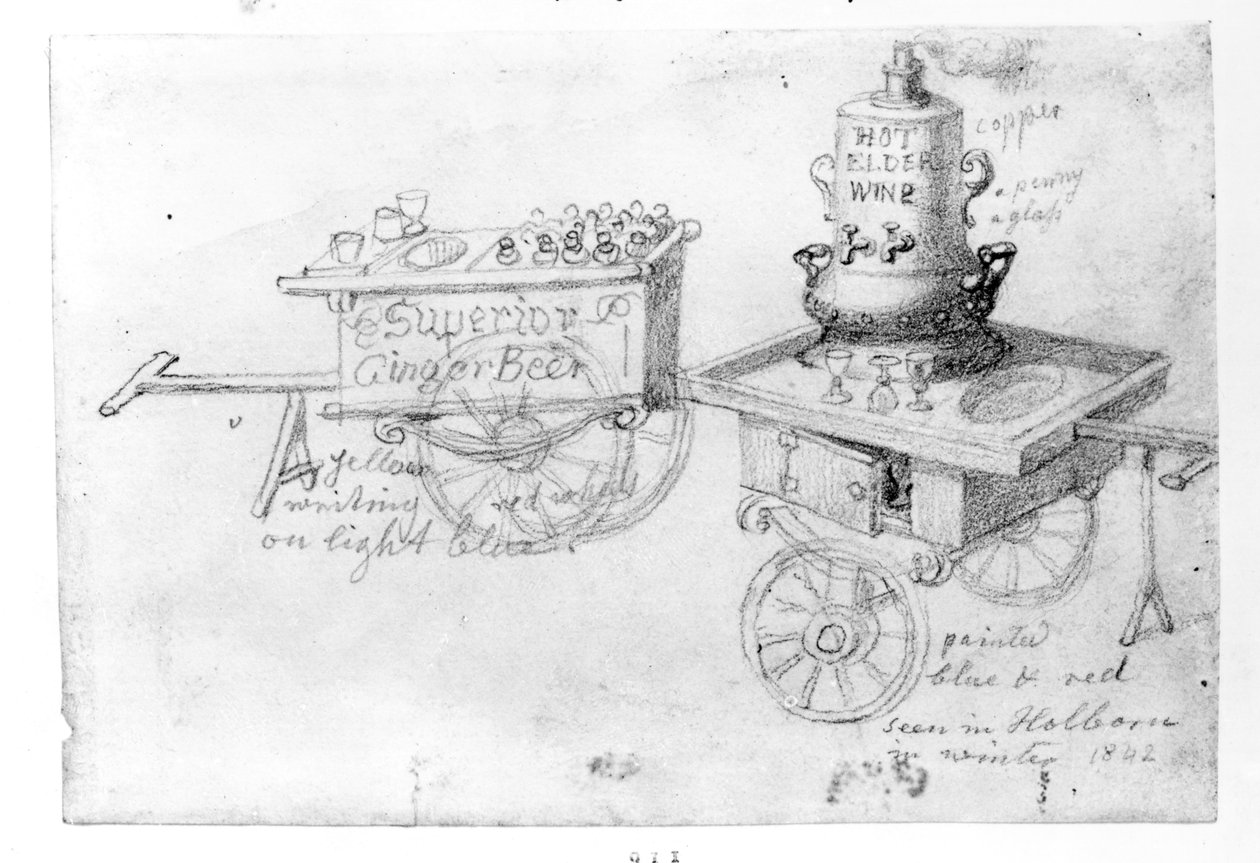 Superior
Ginger Beer
yellow
writing
on light blue
red wheels
HOT
ELDER
WINE
copper
a penny
a glass
painted
blue & red
seen in Holborn
in winter 1842